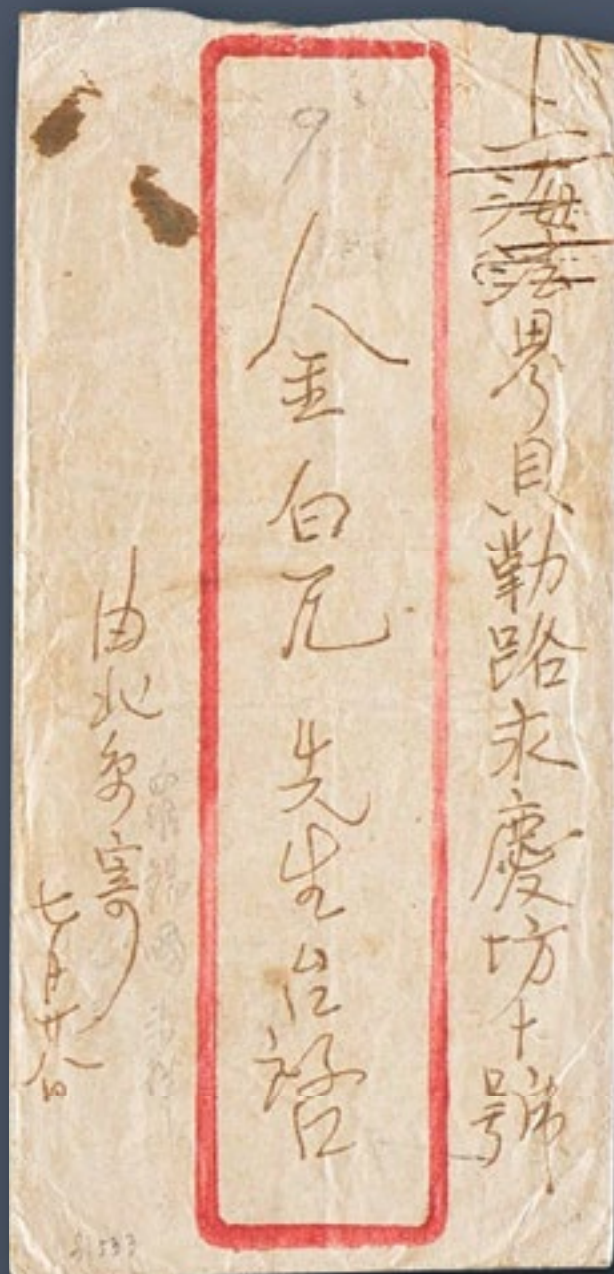 上海法界貝勒路永慶坊十號
9
金白凡先生台啓
由北京寄
七月廿八日